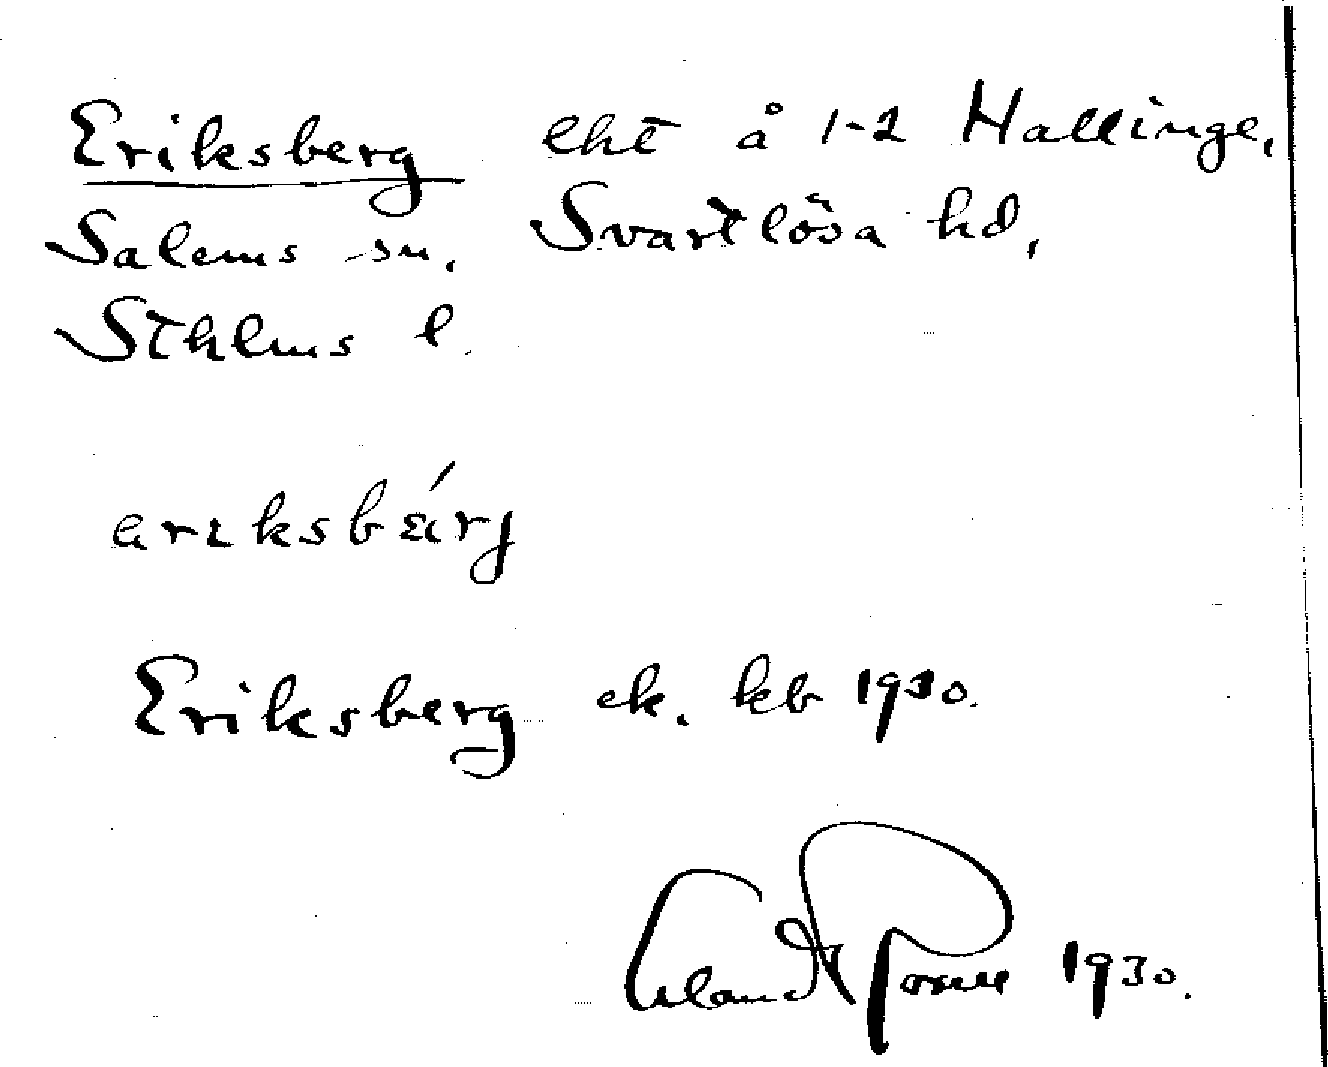 Eriksberg lht å 1-2 Hallinge,
Salems sn. Svartlösa hd,
Sthlms l.
Eriksberg ek. kb 1930.
Erland Rosell 1930.